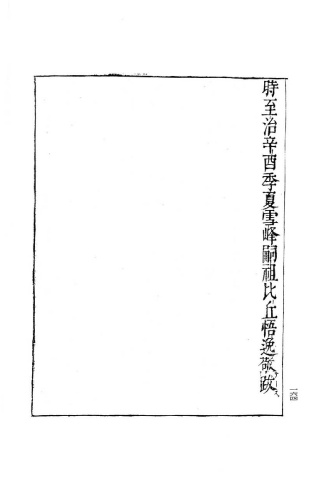 時至治辛酉季夏雪峰嗣祖比丘悟逸敬跋
一六四